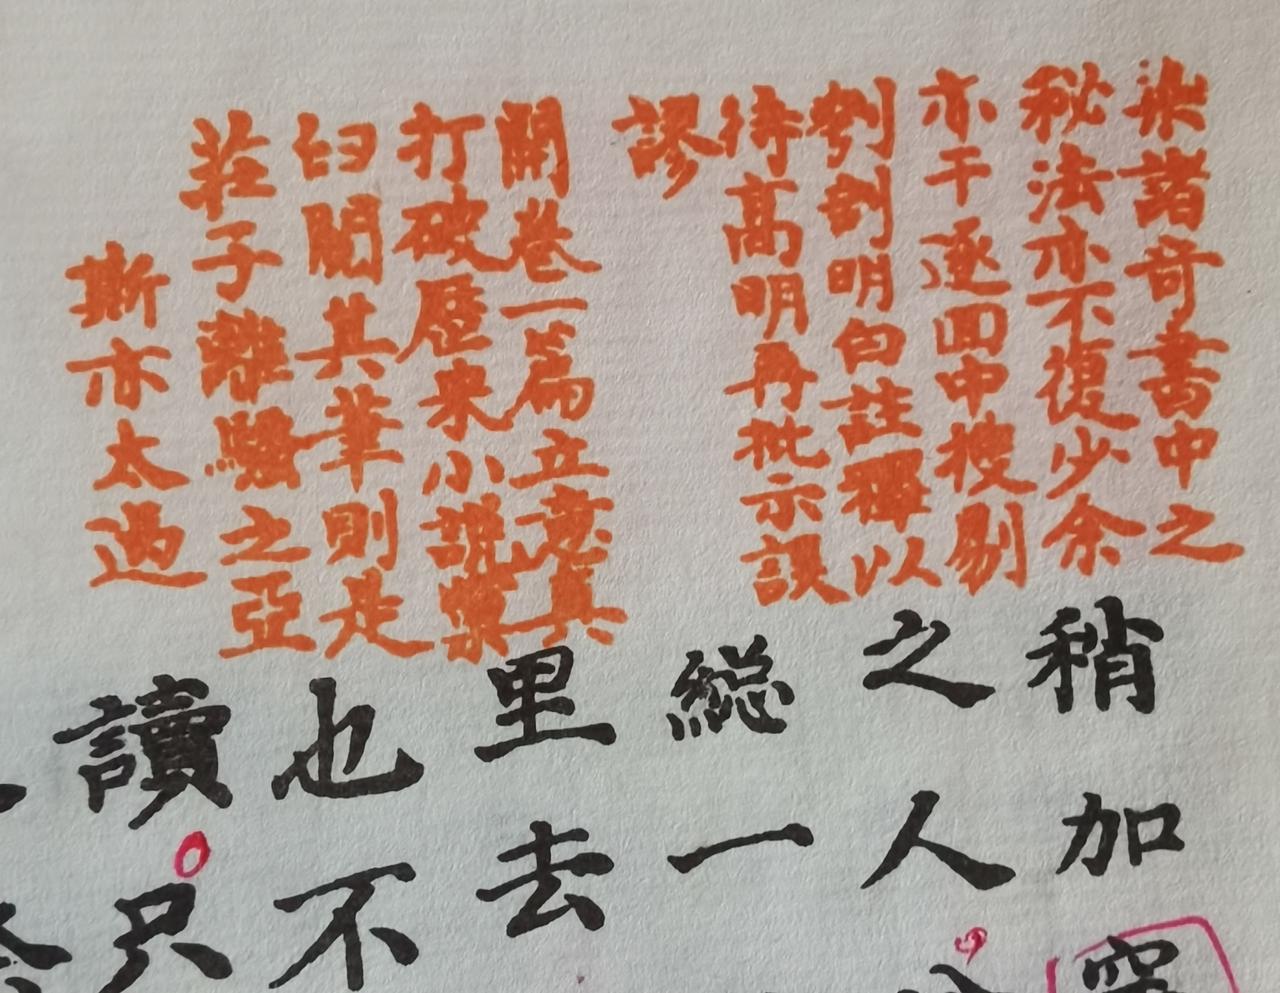 染諸奇書中之
秘法亦不復少余
亦干逐回中搜剔
刳剖明白註釋以
待高明再批示誤
謬
開卷一篇立意真
打破歷來小說窠
臼閱其筆則是
荘子離騷之亞
斯亦太過
稍加穿
之人
総一
里去
也不
讀只